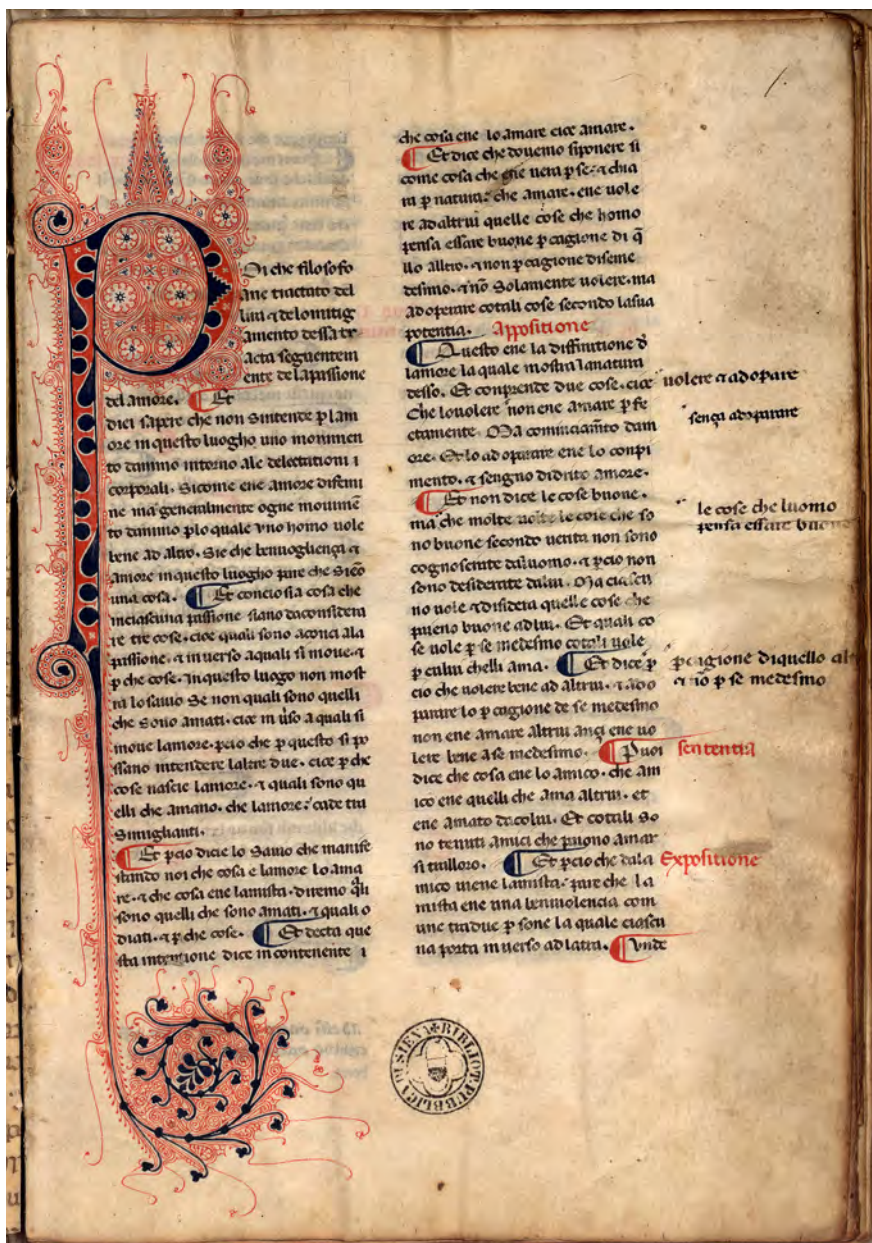 Poi che filosofo
ane tractato del
lira ⁊ delomitig
amento dessa tr
acta seguentem
ente de la passione
del amore. Et
diei sapere che non sintende p lam
ore in questo luogho uno mouimen
to danimo intorno ale delectationi i
corporali. Sicome ene amore difemi
ne ma generalmente ogne mouimē
to danimo plo quale vno homo uole
bene ad altro. Sie che beniuogliença ⁊
amore in questo luogho pare che Sieno
una cosa. Et concio sia cosa che
inciascuna passione siano daconsidera
re tre cose. cioe quali sono aconci ala
passione. ⁊ in uerso aquali si moue. ⁊
p che cose. In questo luogo non most
ra lo sauio Se non quali sono quelli
che Sono amati. cioe in ūso a quali si
moue lamore. pcio che p questo si po
ssano intendere laltre due. cioe p che
cose nascie lamore. ⁊ quali sono qu
elli che amano. che lamore cade tra
Simiglianti.
Et pcio dicie lo Sauio che manife
stando noi che cosa e lamore lo ama
re. ⁊ che cosa ene lamista. diremo q̄li
sono quelli che sono amati. ⁊ quali o
diati. ⁊ p che cose. Et decta que
sta intentione dice incontenente i
che cosa ene lo amare cioe amare.
Et dice che douemo siponere si
come cosa che gie uera p se. ⁊ chia
ra p natura che amare. ene uole
re ad altrui quelle cose che homo
pensa essare buone p cagione di q̄
llo altro. ⁊ non p cagione diseme
desimo. ⁊ nō Solamente uolere. ma
adoperare cotali cose secondo la sua
potentia. Appositione
Questo ene la diffinitione d
lamore la quale mostra lanatura
desso. Et conprende due cose. cioe
Che louolere non ene amare p fe
ctamente. Ma cominciamēto dam
ore. Et lo adoparare ene lo conpi
mento. ⁊ sengno didrito amore.
Et non dice le cose buone.
ma che molte uolte le cose che so
no buone secondo uerita non sono
cognosciute daluomo. ⁊ pcio non
sono desiderate dalui. Ma ciascu
no uole ⁊ disidera quelle cose che
pueno buone ad lui. Et quali co
se uole p se medesmo cotali uole
p cului chelli ama. Et dice p
cio che uolere bene ad altrui. ⁊ ado
parare lo p cagione de se medesmo
non ene amare altrui ançi ene uo
lere bene a se medesimo. Puoi
dice che cosa ene lo amico. che am
ico ene quelli che ama altrui. et
ene amato dacolui. Et cotali So
no tenuti amici che puono amar
si traloro. Et pcio che dala
mico uiene lamista. pare che la
mista ene una beniuolencia com
une tra due p sone la quale ciascu
na porta in uerso ad laltra. Vnde
uolere ⁊ adoparare
sença adoparare
le cose che luomo
pensa essare buone
p cagione diquello al
⁊ nō p se medesmo
sententia
Expositione
BIBLIOT. PUBBLICA DI SIENA